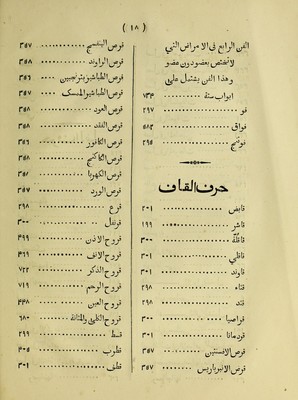 ( ١٨ )
الفن الرابع فى الامراض التى
لا تختص بعضو دون عضو
وهذا الفن يشتمل على
ابواب ستة ١٣٣
فو ٢٩٧
فواق ٥٨٣
فوتنج ٢٩٥
حرف القاف
قابض ٢٠١
قاشر ١٩٩
قاقلة ٣٠٠
قاقلى ٣٠١
قاوند ٣٠١
قثاء ٢٩٨
قند ٢٩٨
قراصيا ٣٠٠
قردمانا ٣٠١
قرص الافسنتين ٣٥٧
قرص الانبرباريس ٣٥٧
قرص البنفسج ٣٥٧
قرص الراوند ٣٥٨
قرص الطباشير بترنجبين ٣٥٦
قرص الطباشير الممسك ٣٥٧
قرص العود ٣٥٨
قرص الكافور ٣٥٦
قرص الكاكنج ٣٥٨
قرص الكهربا ٣٥٨
قرص الورد ٣٥٧
قرع ٢٩٨
قرنفل ٣٠٠
قروح الاذن ٤٩٩
قروح الانف
قروح الذكر ٧٢٢
قروح الرحم ٧١٩
قروح العين ٤٤٨
قروح الكلى والمثانة ٦٨٠
قسط ٢٩٩
قطرب ٤٠٥
قطف ٣٠١